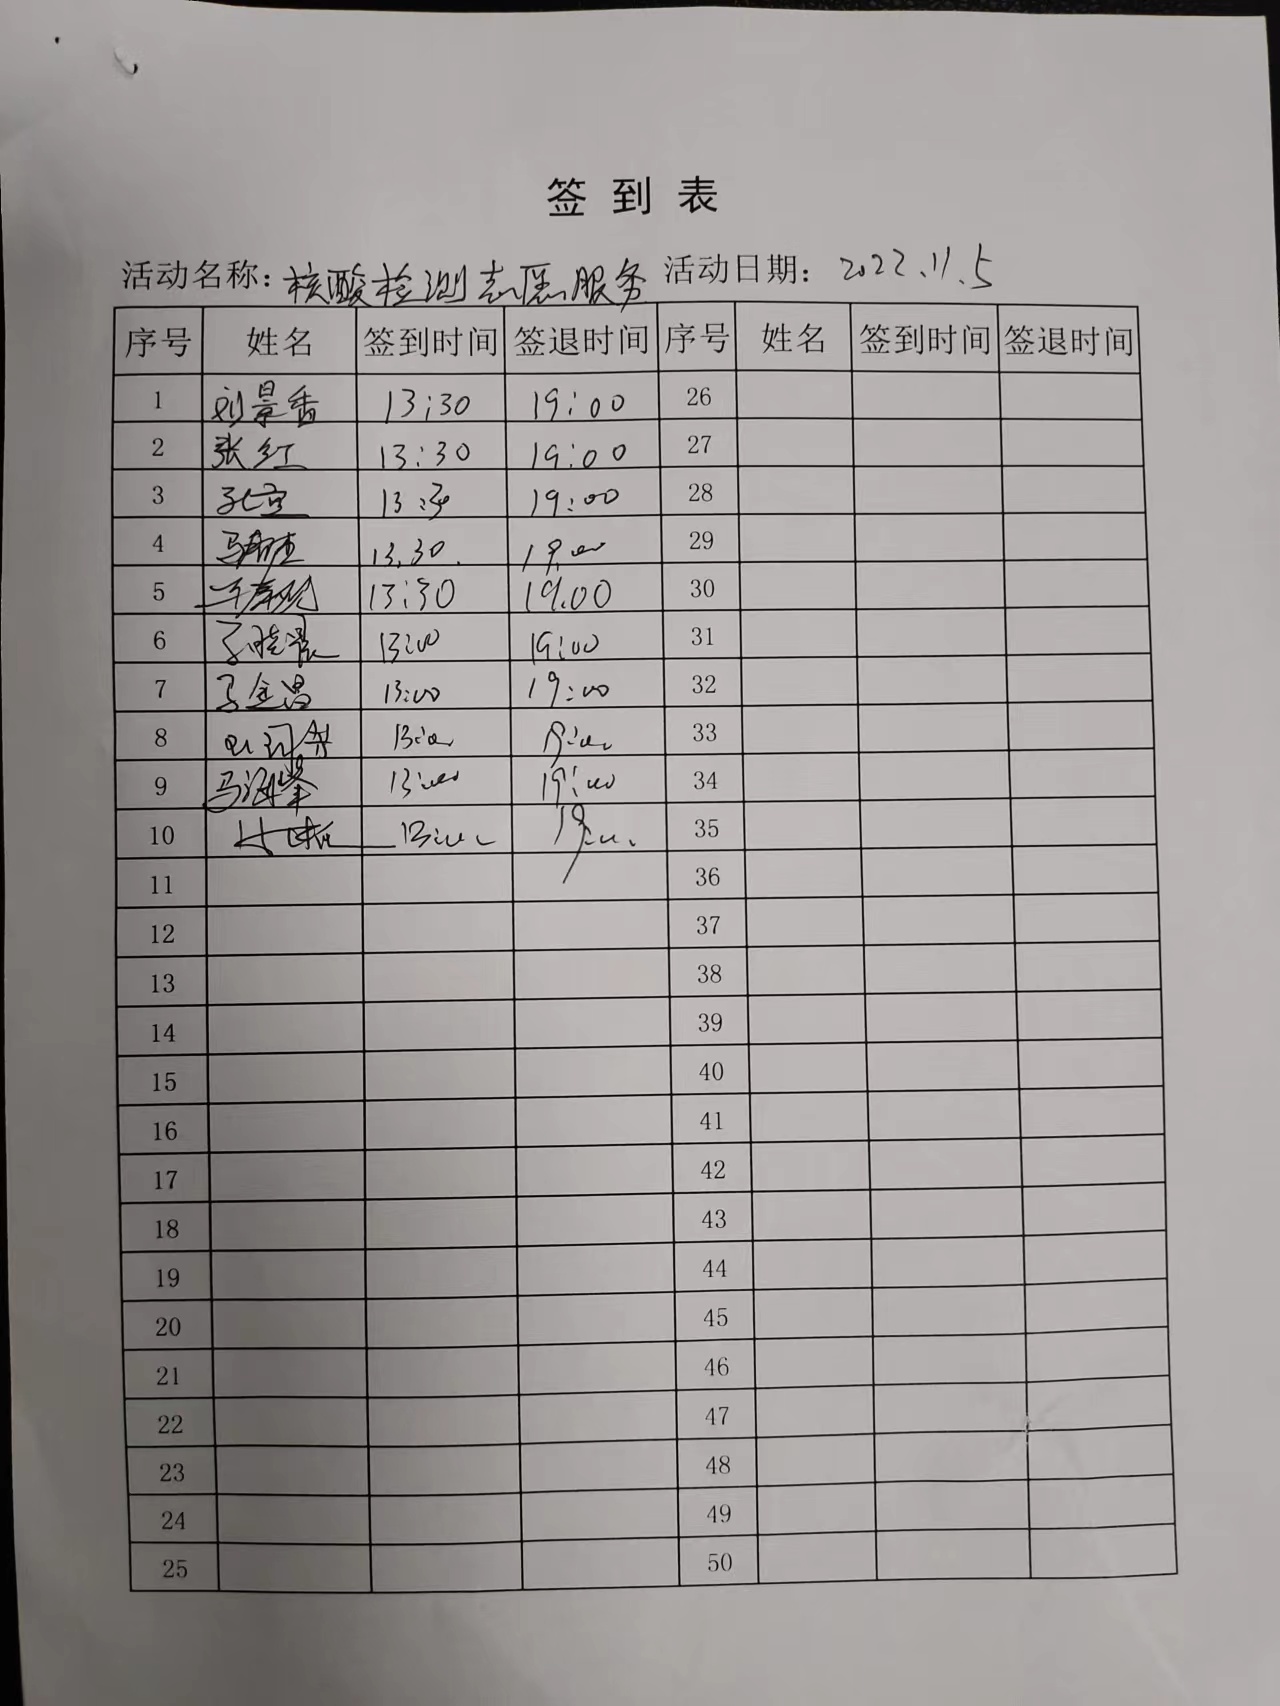 签到表
活动名称：核酸检测志愿服务 活动日期：2022.11.5
序号 姓名 签到时间 签退时间 序号 姓名 签到时间 签退时间
1 刘景香 13:30 19:00 26
2 张红 13:30 19:00 27
3 13:30 19:00 28
4 13.30. 19:00 29
5 13:30 19.00 30
6 13:00 19:00 31
7 马金昌 13:00 19:00 32
8 13:00 19:00 33
9 马海峰 13:00 19:00 34
10 13:00 19:00 35
11 36
12 37
13 38
14 39
15 40
16 41
17 42
18 43
19 44
20 45
21 46
22 47
23 48
24 49
25 50